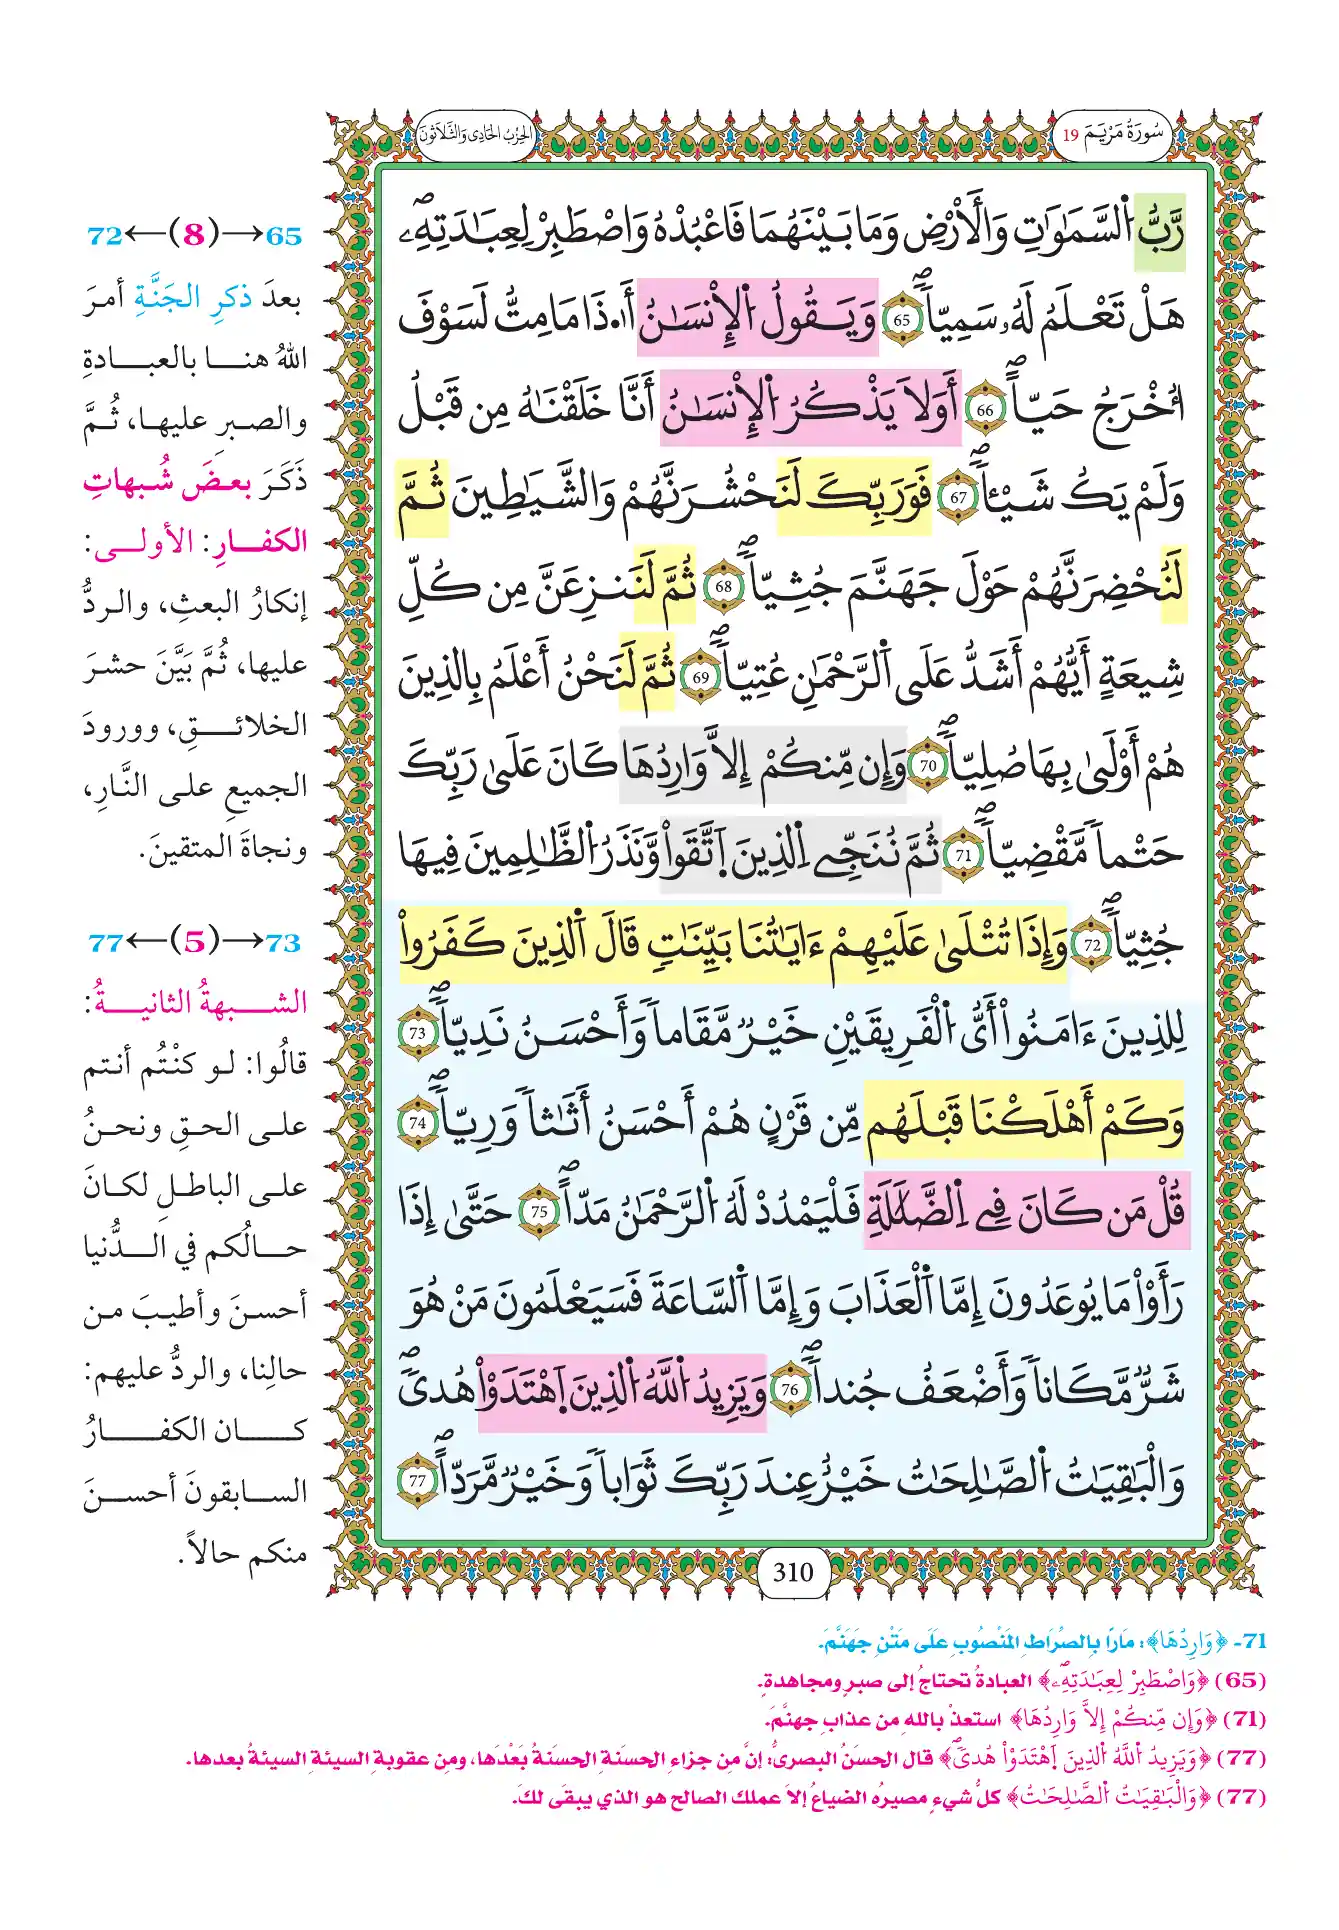 سُورَةُ مَرْيَمَ 19
الحِزْبُ الحَادِي وَالثَّلَاثُونَ
رَّبُّ اُ۬لسَّمَٰوَٰتِ وَالَارْضِ وَمَا بَيْنَهُمَا فَاعْبُدْهُ وَاصْطَبِرْ لِعِبَٰدَتِهِۦۖ
هَلْ تَعْلَمُ لَهُۥ سَمِيّاٗۖ 65 وَيَقُولُ اُ۬لِانْسَٰنُ أَ.ذَا مَا مِتُّ لَسَوْفَ
أُخْرَجُ حَيّاًۖ 66 أَوَلَا يَذْكُرُ اُ۬لِانْسَٰنُ أَنَّا خَلَقْنَٰهُ مِن قَبْلُ
وَلَمْ يَكُ شَيْـٔاٗۖ 67 فَوَرَبِّكَ لَنَحْشُرَنَّهُمْ وَالشَّيَٰطِينَ ثُمَّ
لَنُحْضِرَنَّهُمْ حَوْلَ جَهَنَّمَ جُثِيّاٗۖ 68 ثُمَّ لَنَنزِعَنَّ مِن كُلِّ
شِيعَةٍ أَيُّهُمْ أَشَدُّ عَلَى اَ۬لرَّحْمَٰنِ عُتِيّاٗۖ 69 ثُمَّ لَنَحْنُ أَعْلَمُ بِالذِينَ
هُمْ أَوْلَىٰ بِهَا صُلِيّاٗۖ 70 وَإِن مِّنكُمْ إِلَّا وَارِدُهَا كَانَ عَلَىٰ رَبِّكَ
حَتْماٗ مَّقْضِيّاٗۖ 71 ثُمَّ نُنَجِّے اِ۬لذِينَ اَ۪تَّقَواْ وَّنَذَرُ اُ۬لظَّٰلِمِينَ فِيهَا
جُثِيّاٗۖ 72 وَإِذَا تُتْلَىٰ عَلَيْهِمْ ءَايَٰتُنَا بَيِّنَٰتٖ قَالَ اَ۬لذِينَ كَفَرُواْ
لِلذِينَ ءَامَنُواْ أَيُّ اُ۬لْفَرِيقَيْنِ خَيْرٞ مَّقَاماٗ وَأَحْسَنُ نَدِيّاٗۖ 73
وَكَمْ أَهْلَكْنَا قَبْلَهُم مِّن قَرْنٍ هُمْ أَحْسَنُ أَثَٰثاٗ وَرِيّاٗۖ 74
قُلْ مَن كَانَ فِے اِ۬لضَّلَٰلَةِ فَلْيَمْدُدْ لَهُ اُ۬لرَّحْمَٰنُ مَدّاًۖ 75 حَتَّىٰ إِذَا
رَأَوْاْ مَا يُوعَدُونَ إِمَّا اَ۬لْعَذَابَ وَإِمَّا اَ۬لسَّاعَةَ فَسَيَعْلَمُونَ مَنْ هُوَ
شَرّٞ مَّكَاناٗ وَأَضْعَفُ جُنداٗۖ 76 وَيَزِيدُ اُ۬للَّهُ اُ۬لذِينَ اَ۪هْتَدَوْاْ هُدىٗۖ
وَالْبَٰقِيَٰتُ اُ۬لصَّٰلِحَٰتُ خَيْرٌ عِندَ رَبِّكَ ثَوَاباٗ وَخَيْرٞ مَّرَدّاًۖ 77
310
65→(8)←72
بعدَ ذكرِ الجَنَّةِ أمرَ
اللهُ هنا بالعبادةِ
والصبرِ عليها، ثُمَّ
ذَكَرَ بعضَ شُبهاتِ
الكفارِ: الأولى:
إنكارُ البعثِ، والردُّ
عليها، ثُمَّ بَيَّنَ حشرَ
الخلائقِ، وورودَ
الجميعِ على النَّارِ،
ونجاةَ المتقينَ.
73→(5)←77
الشبهةُ الثانيةُ:
قالُوا: لو كنْتُم أنتم
على الحقِ ونحنُ
على الباطلِ لكانَ
حالُكم في الدُّنيا
أحسنَ وأطيبَ من
حالِنا، والردُّ عليهم:
كان الكفارُ
السابقونَ أحسنَ
منكم حالاً.
71- ﴿وَارِدُهَا﴾: مَارًا بِالصِّرَاطِ المَنْصُوبِ عَلَى مَتْنِ جَهَنَّمَ.
(65) ﴿وَاصْطَبِرْ لِعِبَٰدَتِهِۦۖ﴾ العبادةُ تحتاجُ إلى صبرٍ ومجاهدةٍ.
(71) ﴿وَإِن مِّنكُمْ إِلَّا وَارِدُهَا﴾ استعذْ باللهِ من عذابِ جهنَّمَ.
(77) ﴿وَيَزِيدُ اُ۬للَّهُ اُ۬لذِينَ اَ۪هْتَدَوْاْ هُدىٗۖ﴾ قال الحسَنُ البصريُّ: إنَّ مِن جزاءِ الحسَنةِ الحسَنةُ بَعْدَهَا، ومِن عقوبةِ السيئةِ السيئةُ بعدها.
(77) ﴿وَالْبَٰقِيَٰتُ اُ۬لصَّٰلِحَٰتُ﴾ كلُّ شيءٍ مصيرُه الضياعُ إلا عملك الصالح هو الذي يبقَى لكَ.